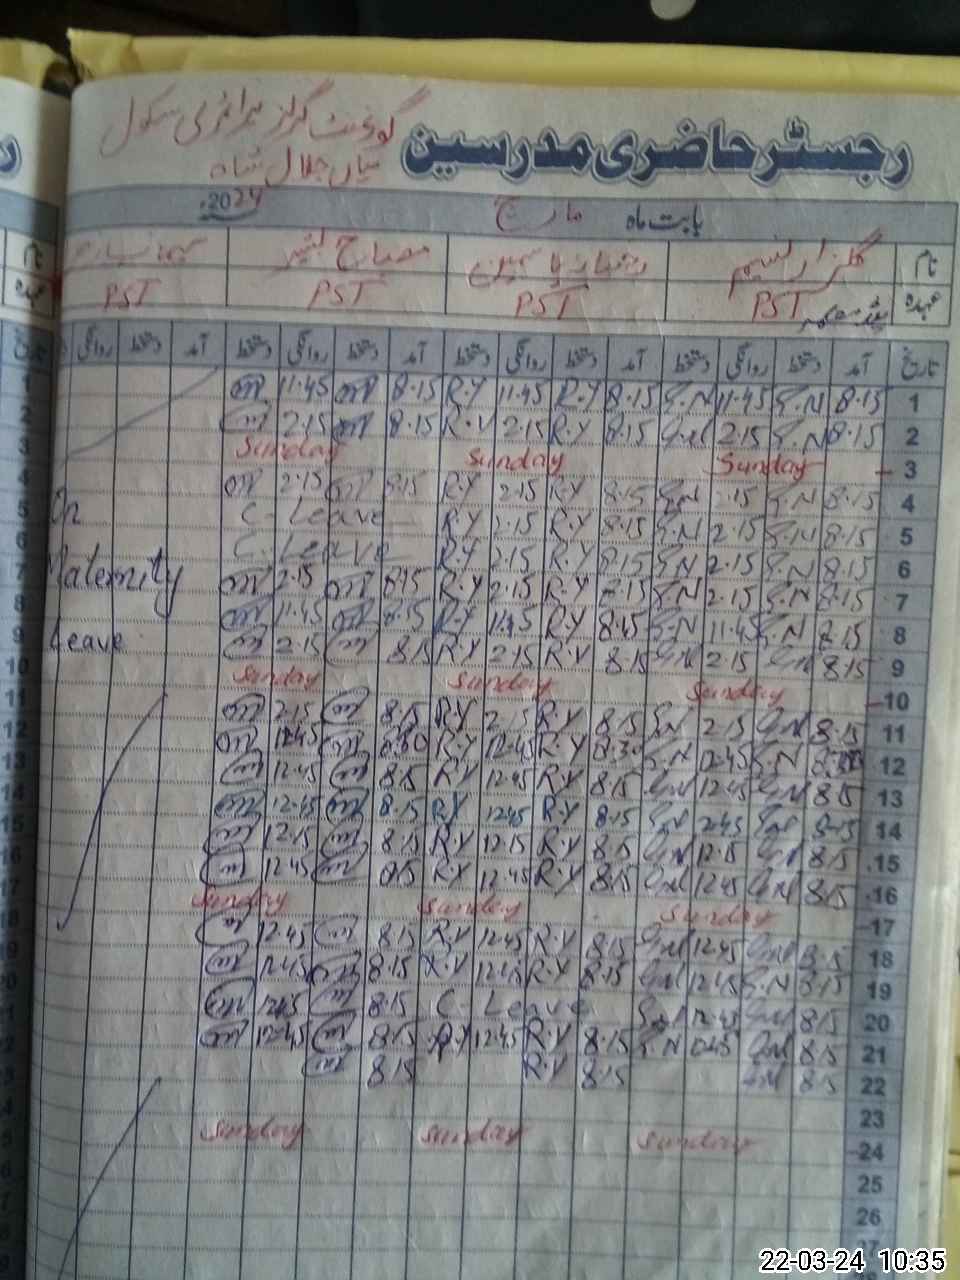 گورنمنٹ گرلز پرائمری سکول
میاں جلال شاہ
رجسٹر حاضری مدرسین
بابت ماہ مارچ 2024ء
نام گلزار نسیم مصباح بشیر
عہدہ PST PST PST PST
تاریخ آمد دستخط روانگی دستخط آمد دستخط روانگی دستخط آمد دستخط روانگی دستخط آمد دستخط روانگی
1 8.15 G.N 11.45 G.N 8.15 R.Y 11.45 R.Y 8.15 m 11.45 m
2 8.15 G.N 2.15 8.15 R.Y 2.15 R.Y 8.15 m 2.15 m
3 Sunday Sunday Sunday
4 8.15 G.N 2.15 G.N 8.15 R.Y 2.15 R.Y 8.15 m 2.15 m
5 8.15 G.N 2.15 G.N 8.15 R.Y 2.15 R.Y C-Leave On
6 8.15 G.N 2.15 G.N 8.15 R.Y 2.15 R.Y C-Leave
7 8.15 G.N 2.15 G.N 8.15 R.Y 2.15 R.Y 8.15 m 2.15 m Maternity
8 8.15 G.N 11.45 G.N 8.15 R.Y 11.45 R.Y 8.15 m 11.45 m
9 8.15 2.15 8.15 R.Y 2.15 R.Y 8.15 m 2.15 m Leave
10 Sunday Sunday Sunday
11 8.15 2.15 G.N 8.15 R.Y 2.15 R.Y 8.15 m 2.15 m
12 G.N 12.45 G.N 8.30 R.Y 12.45 R.Y 8.30 m 12.45 m
13 8.15 12.45 8.15 R.Y 12.45 R.Y 8.15 m 12.45 m
14 8.15 12.45 8.15 R.Y 12.45 R.Y 8.15 m 12.45 m
15 8.15 12.15 8.15 R.Y 12.15 R.Y 8.15 m 12.15 m
16 8.15 12.45 8.15 R.Y 12.45 R.Y 8.15 m 12.45 m
17 Sunday Sunday Sunday
18 8.15 12.45 8.15 R.Y 12.45 R.Y 8.15 m 12.45 m
19 8.15 G.N 12.45 8.15 R.Y 12.45 R.Y 8.15 m 12.45 m
20 8.15 12.45 C-Leave 8.15 m 12.45 m
21 8.15 12.45 G.N 8.15 R.Y 12.45 R.Y 8.15 m 12.45 m
22 8.15 8.15 R.Y 8.15 m
23
24 Sunday Sunday Sunday
25
26
27
22-03-24 10:35